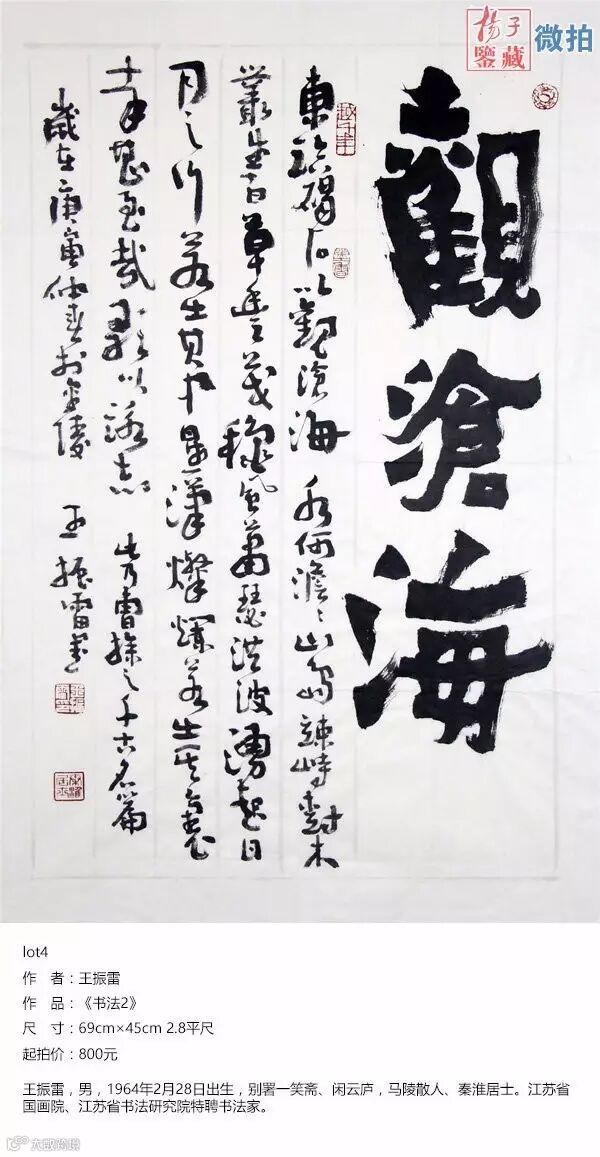 扬子
鑒藏
微拍
觀滄海
越千年
東臨碣石以觀滄海水何澹々山島竦峙樹木
叢生百草豐茂秋風蕭瑟洪波湧起日
月之行若出其中星漢燦爛若出其裏
幸甚至哉歌以詠志 此乃曹操之千古名篇
歲在庚寅仲春於金陵 王振雷書
lot4
作 者：王振雷
作 品：《书法2》
尺 寸：69cm×45cm 2.8平尺
起拍价：800元
王振雷，男，1964年2月28日出生，别署一笑斋、闲云庐，马陵散人、秦淮居士。江苏省
国画院、江苏省书法研究院特聘书法家。
大数跨境